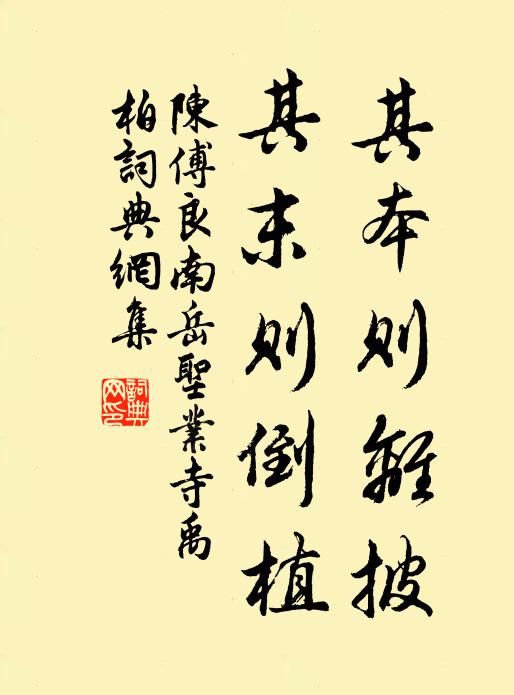 其本则離披
其末则倒植
陳傅良南岳聖業寺禹
柏詞典網集
詞典
网印